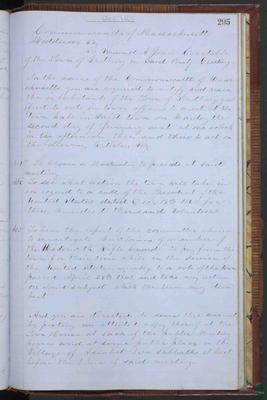 Dec 1864
295
Commonwealth of Massachusetts
Middlesex SS.
To Constable
of the Town of Sudbury in said County Greeting
In the name of the Commonwealth of Massa-
chusetts you are required to notify and warn
the inhabitants of the Town of Sudbury
to vote in Town affairs to meet at the
Town hall in said Town on Monday the
second day of January next at one oclock
in the afternoon then and there to act on
the following Articles viz
1st To choose a Moderator to preside at said
meeting
2d To see what action the town will take in
in regard to a call of the President of the
United States dated Dec 19th 1864 for
three hundred thousand volunteers
3d To hear the report of the committee chosen
to investigate the claims of members of
the Wadsworth Rifle Guards to pay from the
town for their time while in the service of
the United States agreeably to a vote of the town
passed 1864 and take any action
on said subject which the town may deem
best
And you are directed to serve this warrant
by posting an attested copy thereof at the
Town House at each of the public Meeting
houses and at some public place in the
Village of Assabet Two Sabbaths at least
before the time of said meeting